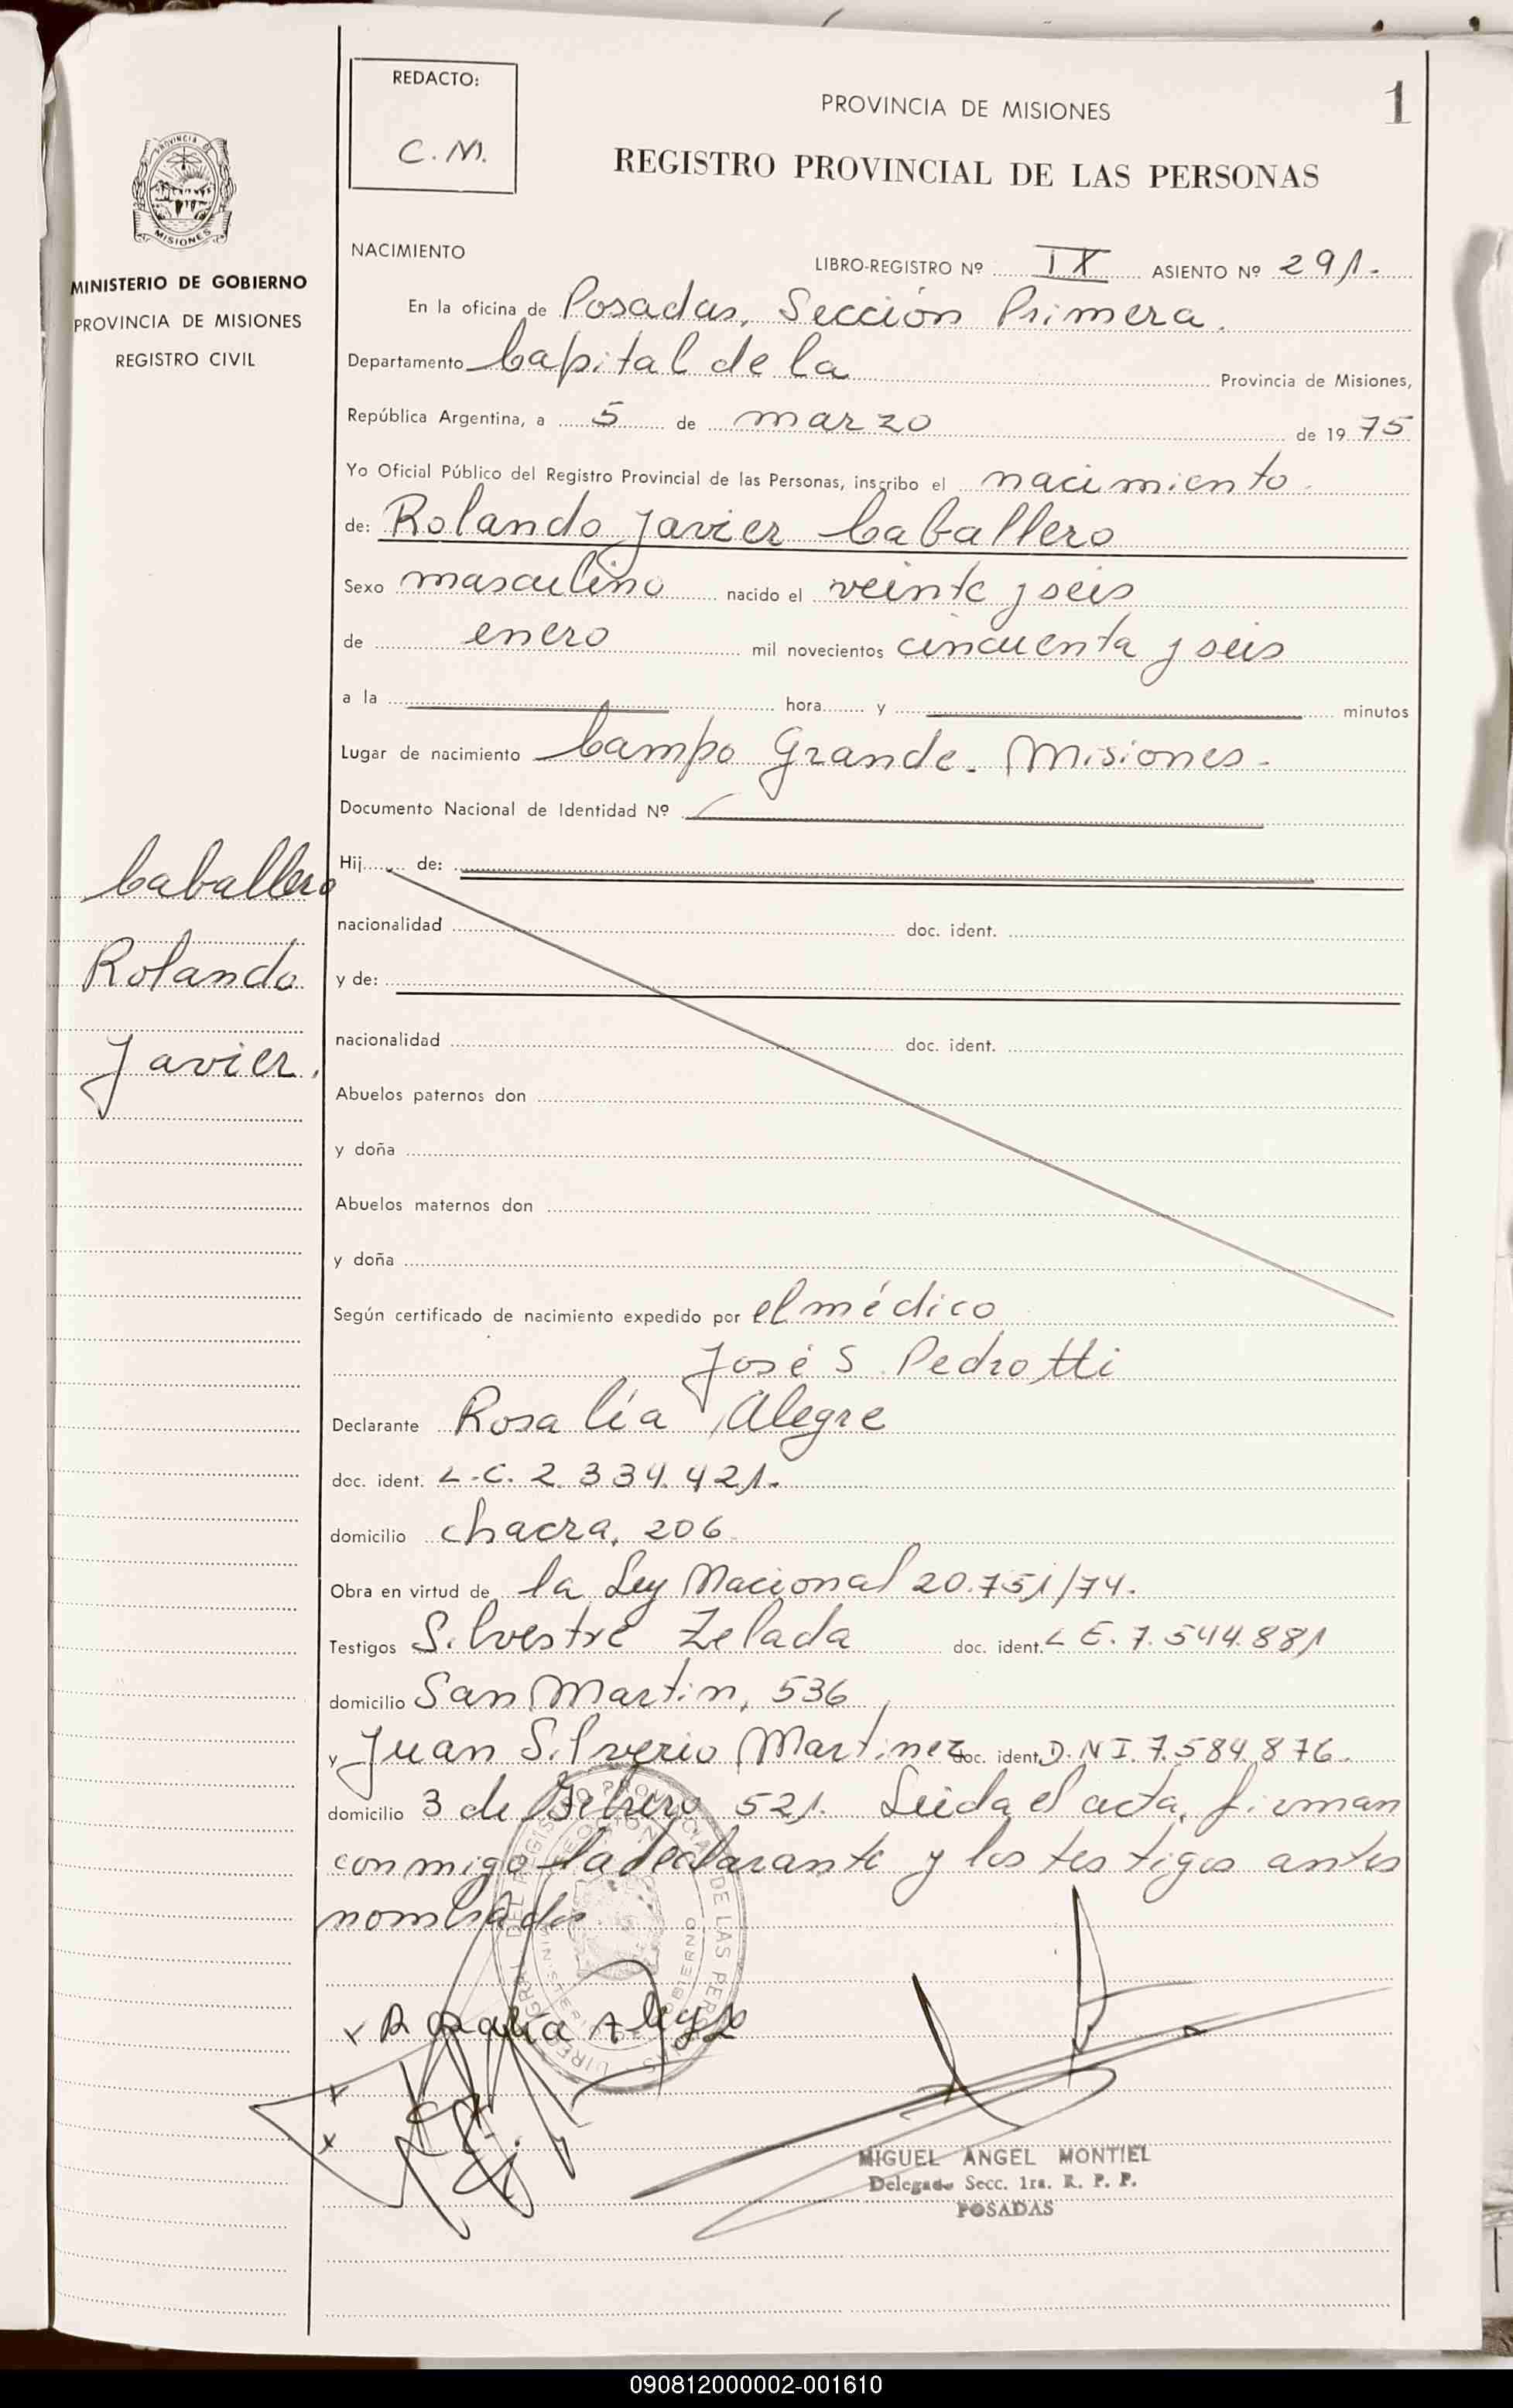 REDACTO:
C.M.
PROVINCIA DE MISIONES
1
REGISTRO PROVINCIAL DE LAS PERSONAS
PROVINCIA DE
MISIONES
MINISTERIO DE GOBIERNO
PROVINCIA DE MISIONES
REGISTRO CIVIL
NACIMIENTO
LIBRO-REGISTRO Nº IX ASIENTO Nº 291.-
En la oficina de Posadas, Sección Primera.
Departamento Capital de la Provincia de Misiones,
República Argentina, a 5 de marzo de 1975
Yo Oficial Público del Registro Provincial de las Personas, inscribo el nacimiento
de: Rolando Javier Caballero
Sexo masculino nacido el veinte y seis
de enero mil novecientos cincuenta y seis
a la hora y minutos
Lugar de nacimiento Campo Grande - Misiones -
Documento Nacional de Identidad Nº
Caballero
Rolando
Javier.
Hij de:
nacionalidad doc. ident.
y de:
nacionalidad doc. ident.
Abuelos paternos don
y doña
Abuelos maternos don
y doña
Según certificado de nacimiento expedido por el médico
José S. Pedrotti
Declarante Rosalía Alegre
doc. ident. L.C. 2.334.421.-
domicilio chacra, 206
Obra en virtud de la Ley Nacional 20.751/74.
Testigos Silvestre Zelada doc. ident. L E. 7.544.881
domicilio San Martin, 536
y Juan Silverio Martinez doc. ident. D.N I. 7.584.876.
domicilio 3 de Febrero 521. Leida el acta, firman
conmigo la declarante y los testigos antes
nombrados
x Rosalia Alegre
x
x
MIGUEL ANGEL MONTIEL
Delegado Secc. 1ra. R. P. P.
POSADAS
090812000002-001610